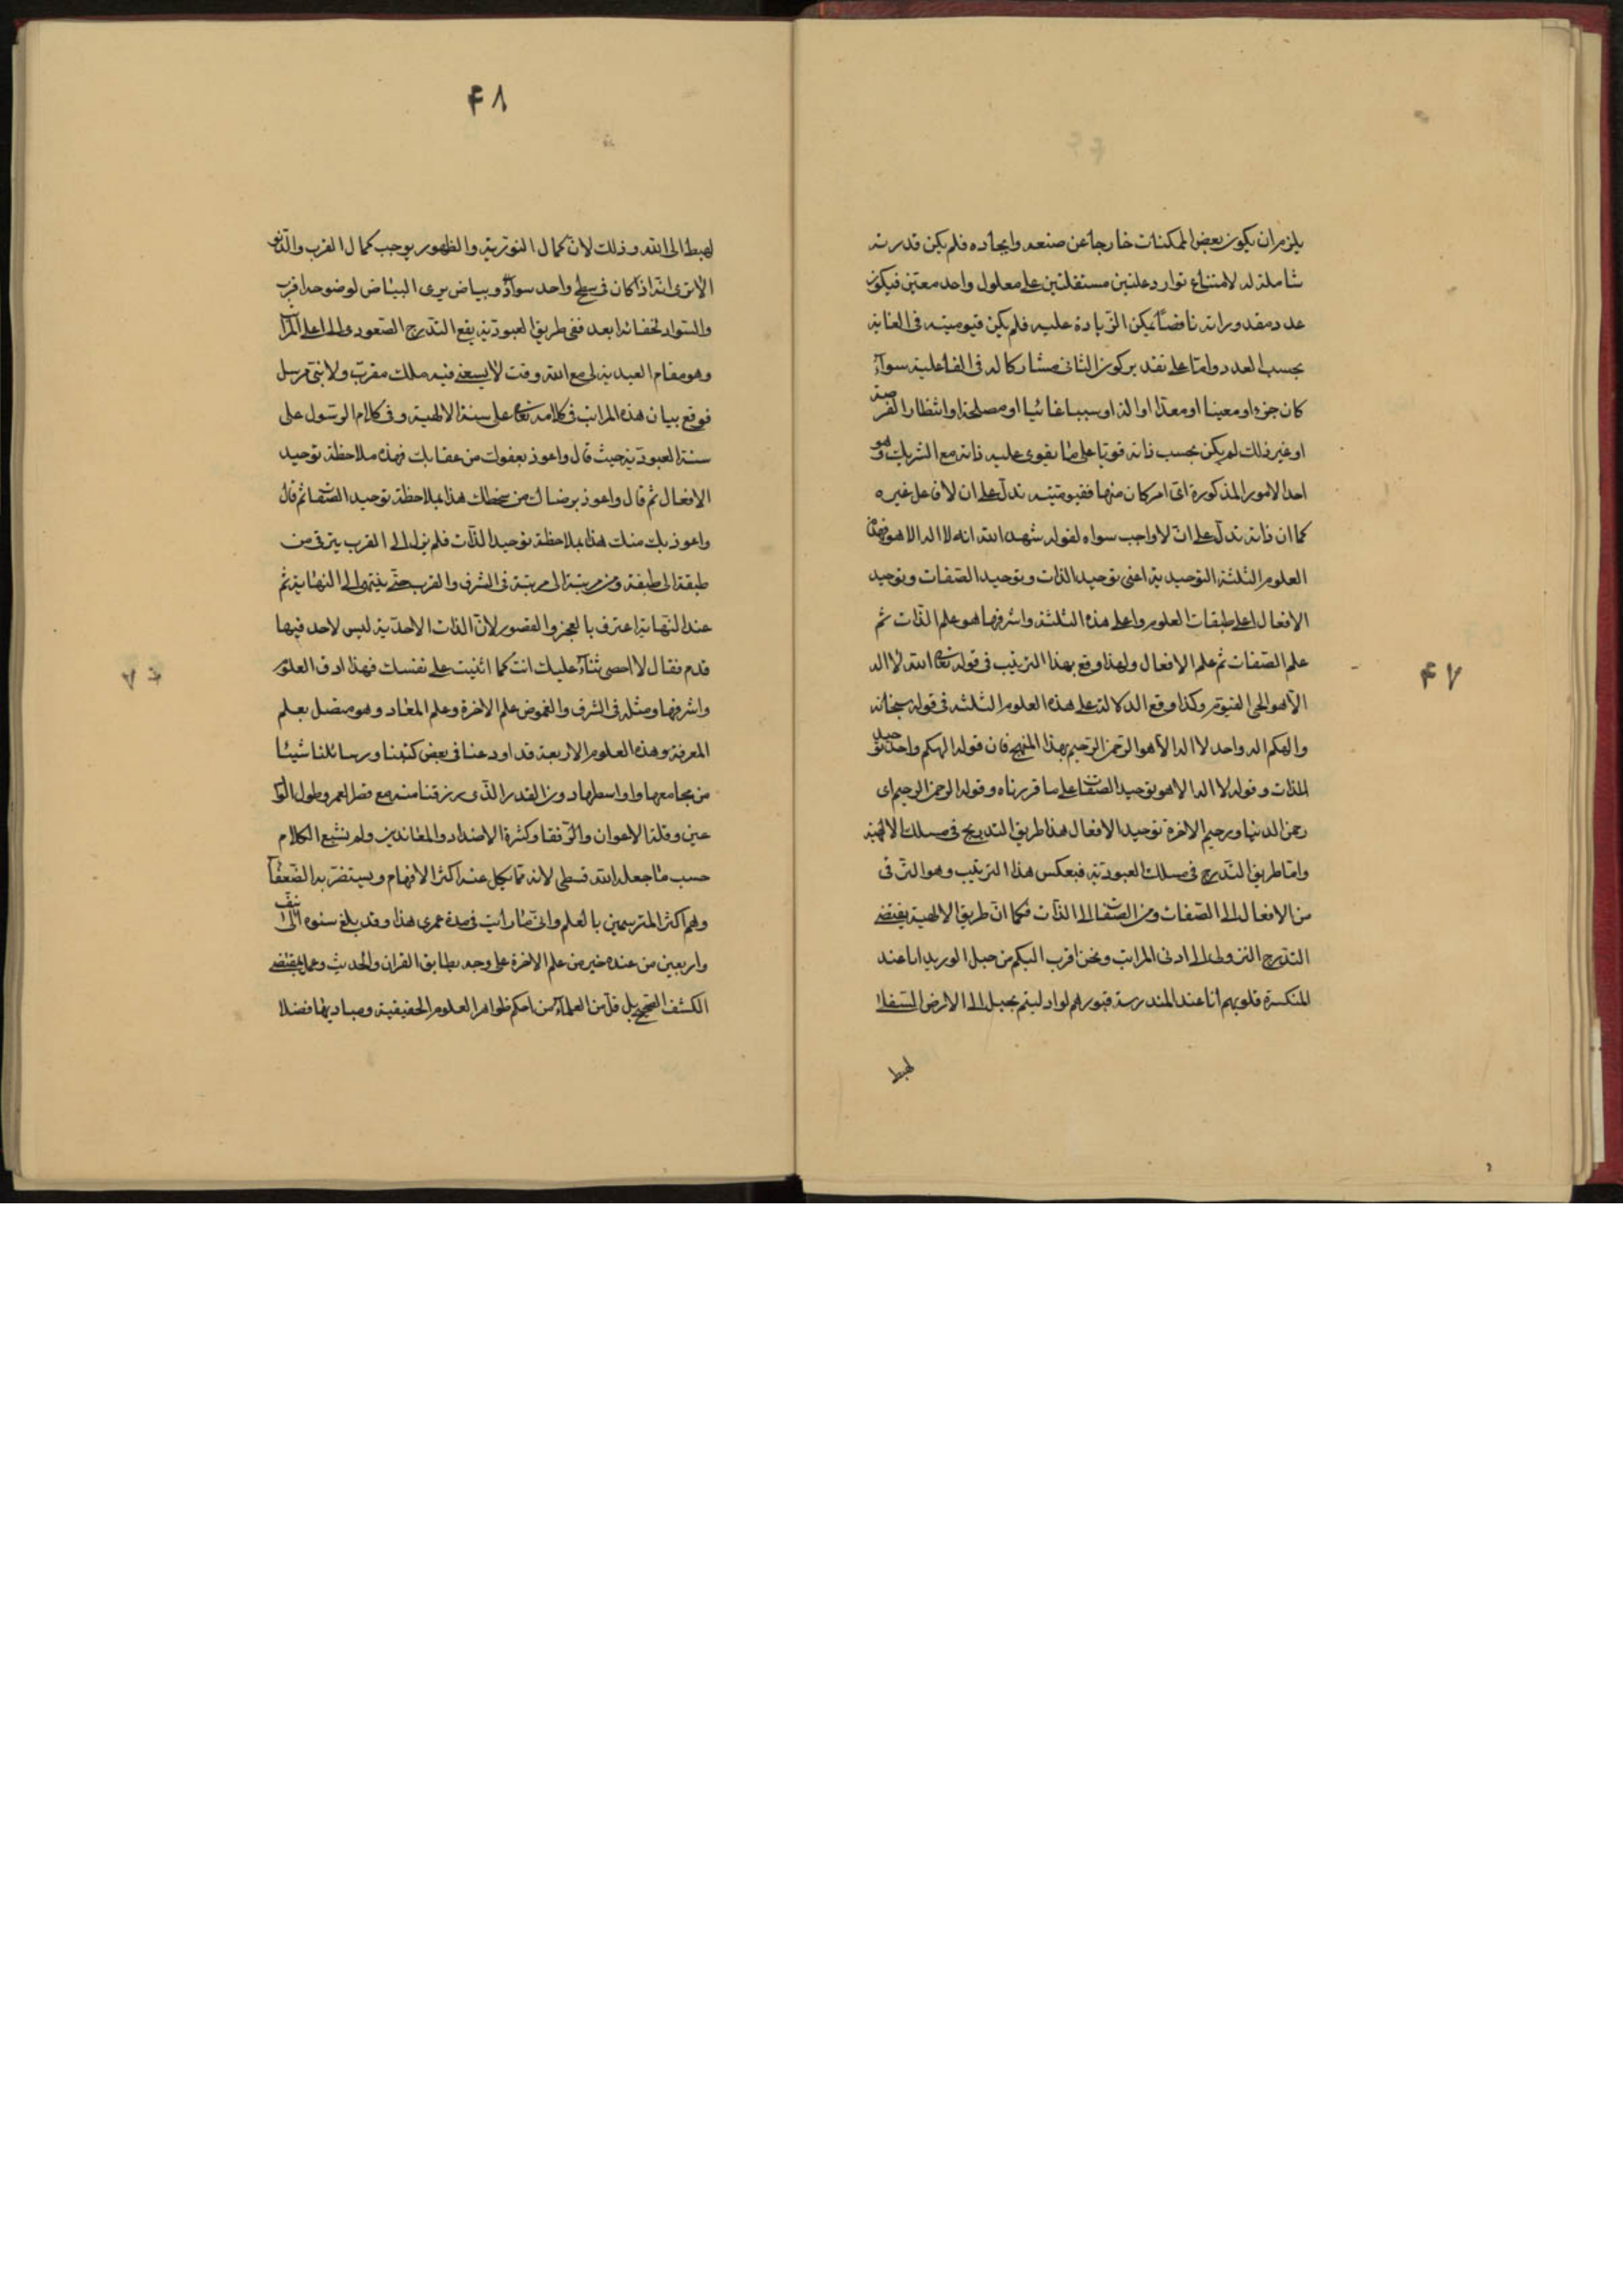 ۴۷
يلزم ان يكون بعض الممكنات خارجا عن صنعه وايجاده فلم يكن قدرته
شاملة له لامتناع توارد علتين مستقلتين على معلول واحد معين فيكون
عدد مقدوراته ناقصا يمكن الزيادة عليه فلم يكن قيوميته في الغاية
بحسب العدد واما على تقدير كون الثانى مشاركا له فى الفاعلية سوآء
كان جزء او معينا او معدا او الة او سببا غائيا او مصلحة او انتظار الفرصة
او غير ذلك لم يكن بحسب ذاته قويا على ما يقوى عليه ذاته مع الشريك وهو
احد الامور المذكورة اى امر كان منها فقيوميته تدل على ان لا فاعل غيره
كما ان ذاته تدل على ان لا واجب سواه لقوله شهد الله انه لا اله الا هو فهذه
العلوم الثلثة التوحيدية اعنى توحيد الذات وتوحيد الصفات وتوحيد
الافعال اعلى طبقات العلوم واعلى هذه الثلثة واشرفها هو علم الذات ثم
علم الصفات ثم علم الافعال ولهذا وقع بهذا الترتيب فى قوله تعا الله لا اله
الا هو الحى القيوم وكذا وقع الدلالة على هذه العلوم الثلثه فى قوله سبحانه
والهكم اله واحد لا اله الا هو الرحمن الرحيم بهذا المنهج فان قوله الهكم واحد توحيد
الذات وقوله لا اله الا هو توحيد الصفات على ما قررناه وقوله الرحمن الرحيم اى
رحمن الدنيا ورحيم الاخرة توحيد الافعال هذا طريق التدريج فى مسلك الالهية
واما طريق التدرج فى مسلك العبودية فبعكس هذا الترتيب وهو الترقى
من الافعال الى الصفات ومن الصفات الى الذات فكما ان طريق الالهية يقتضى
التدرج النزولى الى ادنى المراتب ونحن اقرب اليكم من حبل الوريد انا عند
المنكسرة قلوبهم انا عند المندرسة قبورهم لو ادليتم بحبل الى الارض السفلى
لهبط
۴۸
لهبط الى الله وذلك لان كمال النورية والظهور يوجب كمال القرب والدنو
الا ترى انه اذا كان فى سطح واحد سواد وبياض يرى البياض لوضوحه اقرب
والسواد لخفائه ابعد ففى طريق العبودية يقع التدرج الصعودى الى اعلى المرا
وهو مقام العبدية لى مع الله وقت لا يسعنى فيه ملك مقرب ولا نبى مرسل
فوقع بيان هذه المراتب فى كلامه تعا على سنة الالهية وفى كلام الرسول على
سنة العبودية حيث قال واعوذ بعفوك من عقابك فهذه ملاحظة توحيد
الافعال ثم قال واعوذ برضاك من سخطك هذا بملاحظة توحيد الصفات ثم قال
واعوذ بك منك هذا بملاحظة توحيد الذات فلم يزل الى القرب يترقى من
طبقة الى طبقة ومن مرتبة الى مرتبة فى الشرف والقرب حتى ينتهى الى النهاية ثم
عند النهاية اعترف بالعجز والقصور لان الذات الاحدية ليس لاحد فيها
قدم فقال لا احصى ثنآء عليك انت كما اثنيت على نفسك فهذا ادق العلوم
واشرفها ومثله فى الشرف والغموض علم الاخرة وعلم المعاد وهو متصل بعلم
المعرفة وهذه العلوم الاربعة قد اودعنا فى بعض كتبنا ورسائلنا شيئا
من مجامعها واواسطها دون القدر الذى رزقنا منه مع قصر العمر وطول الوا
عين وقلة الاعوان والرفقا وكثرة الاضداد والمعاندين ولم نشبع الكلام
حسب ما جعله الله قسطى لانه مما يكل عنه اكثر الافهام ويستضر به الضعفآ
وهم اكثر المترسمين بالعلم وانى ما رايت فى مدة عمرى هذا وقد بلغ سنوه الى نيف
واربعين من عنده خبر من علم الاخرة على وجه يطابق القران والحديث وعلى مقتضى
الكشف الصحيح بل قل من العلمآء من احكم ظواهر العلوم الحقيقية ومباديها فضلا